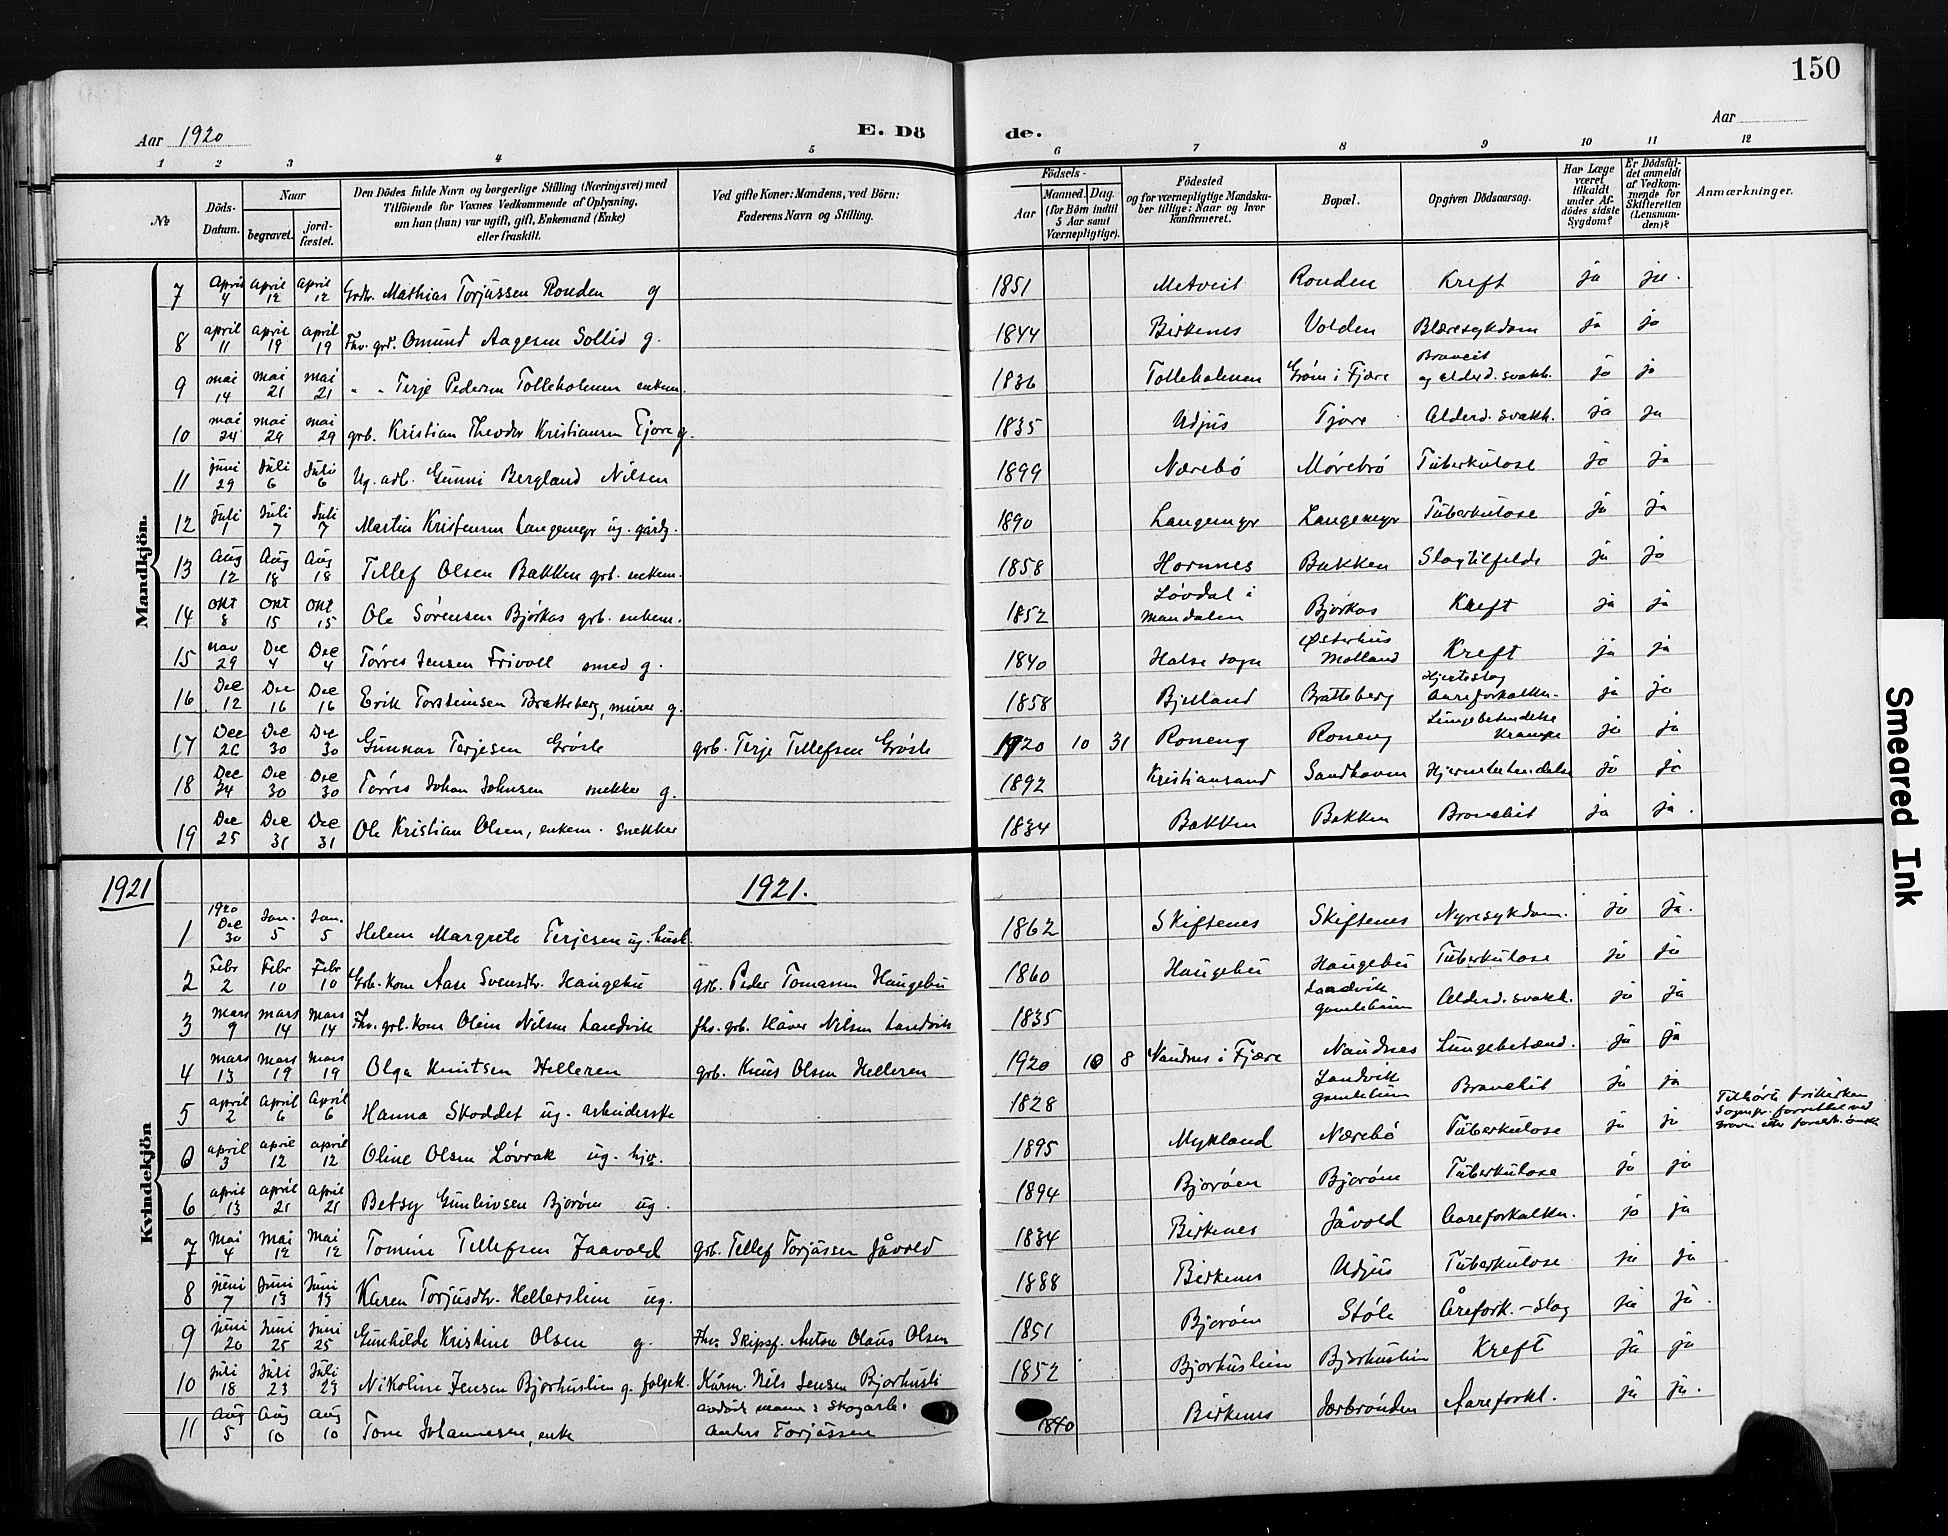 150
Aar 1920
E. Dö de.
Aar
1 2 3 4 5 6 7 8 9 10 11 12
№
Döds-Datum.
Naar
begravet.
jord-fæstet.
Den Dödes fulde Navn og borgerlige Stilling (Næringsvei) med
Tilföiende for Voxnes Vedkommende af Oplysning,
om han (hun) var ugift, gift, Enkemand (Enke)
eller fraskilt.
Ved gifte Koner: Mandens, ved Börn:
Faderens Navn og Stilling.
Födsels-
Aar
Maaned. Dag.
(for Börn indtil
5 Aar samt
Værnepligtige).
Födested
og for værnepligtige Mandska-
ber tillige: Naar og hvor
konfirmeret.
Bopæl.
Opgiven Dödsaarsag.
Har Læge
været
tilkaldt
under Af-
dödes sidste
Sygdom?
Er Dödsfal-
det anmeldt
af Vedkom-
mende for
Skifteretten
(Lensman-
den)?
Anmærkninger.
Mandkjön.
7 April 4 April 12 April 12 Grdbr. Mathias Torjussen Ronden g 1851 Metveit Ronden Kreft ja ja.
8 april 11 april 19 april 19 Fhv. grd. Omund Aagesen Sollid g. 1844 Birkenes Volden Blæresykdom ja ja
9 mai 14 mai 21 mai 21 " " Terje Pedersen Tolleholmen enkem. 1836 Tolleholmen Grøm i Fjære Bronkit og alderd. svakh. ja ja
10 mai 24 mai 29 mai 29 grb. Kristian Theodor Kristiansen Tjore g. 1835 Udjus Tjore Alderd. svakh. ja ja
11 juni 29 Juli 6 Juli 6 Ug. arb. Gunni Bergland Nilsen 1899 Nærebø Mørebrø Tuberkulose ja ja
12 Juli 1 Juli 7 Juli 7 Martin Kristensen Langemyr ug. gårdg. 1890 Langemyr Langemyr Tuberkulose ja ja
13 Aug 12 Aug 18 Aug 18 Tellef Olsen Bakken grb. enkem. 1858 Hornnes Bakken Slagtilfelde ja ja
14 okt 8 okt 15 okt 15 Ole Sørensen Bjørkås grb. enkem. 1852 Løvdal i Mandalen Bjørkås Kreft ja ja
15 nov 29 Dec 4 Dec 4 Tørres Jensen Frivoll smed g. 1840 Halse sogn Østerhus Molland Kreft ja ja
16 Dec 12 Dec 16 Dec 16 Erik Torsteinsen Bratteberg, murer g. 1858 Bjelland Bratteberg Hjerteslag Aareforkalkn. ja ja
17 Dec 26 Dec 30 Dec 30 Gunnar Terjesen Grøsle grb. Terje Tellefsen Grøsle 1920 10 31 Roneng Roneng Lungebetendelse Krampe ja ja
18 Dec 24 Dec 30 Dec 30 Tørres Johan Johnsen snekker g. 1892 Kristiansand Sandhaven Hjernebetendelse ja ja
19 Dec 25 Dec 31 Dec 31 Ole Kristian Olsen, enkem. snekker 1834 Bakken Bakken Bronchit ja ja.
1921 1921.
Kvindekjön
1 1920 Dec 30 Jan. 5 Jan. 5 Helene Margrete Terjesen ug. hush. 1862 Skiftenes Skiftenes Nyresykdom. ja ja.
2 Febr 2 Febr 10 Febr 10 Grb. kone Aase Svensdtr. Haugebu grb. Peder Tomassen Haugebu 1860 Haugebu Haugebu Tuberkulose ja ja
3 mars 9 mars 14 mars 14 Fhv. grb. kone Oline Nilsen Landvik fhv. grb. Håver Nilsen Landvik 1835 Landvik gamlehjem Alderd. svakh. ja ja
4 mars 13 mars 19 mars 19 Olga Knutsen Helleren grb. Knut Olsen Helleren 1920 10 8 Naudnes i Fjære Naudnes Lungebetænd. ja ja
5 april 2 April 6 April 6 Hanna Skoddet ug. arbeiderske 1828 Landvik gamlehjem Bronchit ja ja
6 april 3 april 12 april 12 Oline Olsen Løvrak ug. hjv. 1895 Mykland Nærebø Tuberkulose ja ja Tilhørte frikirken
6 april 13 april 21 april 21 Betsy Gunleivsen Bjorøen ug. 1894 Bjorøen Bjorøen Tuberkulose ja ja
7 Mai 4 Mai 12 Mai 12 Tomine Tellefsen Jaavold grb. Tellef Torjussen Jåvold 1834 Birkenes Jåvold Aareforkalkn. ja ja
8 juni 7 Juni 13 Juni 13 Karen Torjusdtr. Hellerslien ug. 1888 Birkenes Udjus Tuberkulose ja ja
9 juni 20 Juni 25 Juni 25 Gunhilde Kristine Olsen g. Fhv. Skipsf. Anton Olaus Olsen 1851 Bjorøen Støle Årefork.-slag ja ja.
10 Juli 18 Juli 23 Juli 23 Nikoline Jensen Bjorhuslien g. folgek. Kårm. Nils Jensen Bjorhusli 1852 Bjorhuslien Bjorhuslien Kreft ja ja
11 Aug 5 Aug 10 Aug 10 Tone Johannesen, enke avdøde mann: Skogarb. Anders Torjussen 1840 Birkenes Jærbrønden Aareforkl. ja ja.
Smeared Ink